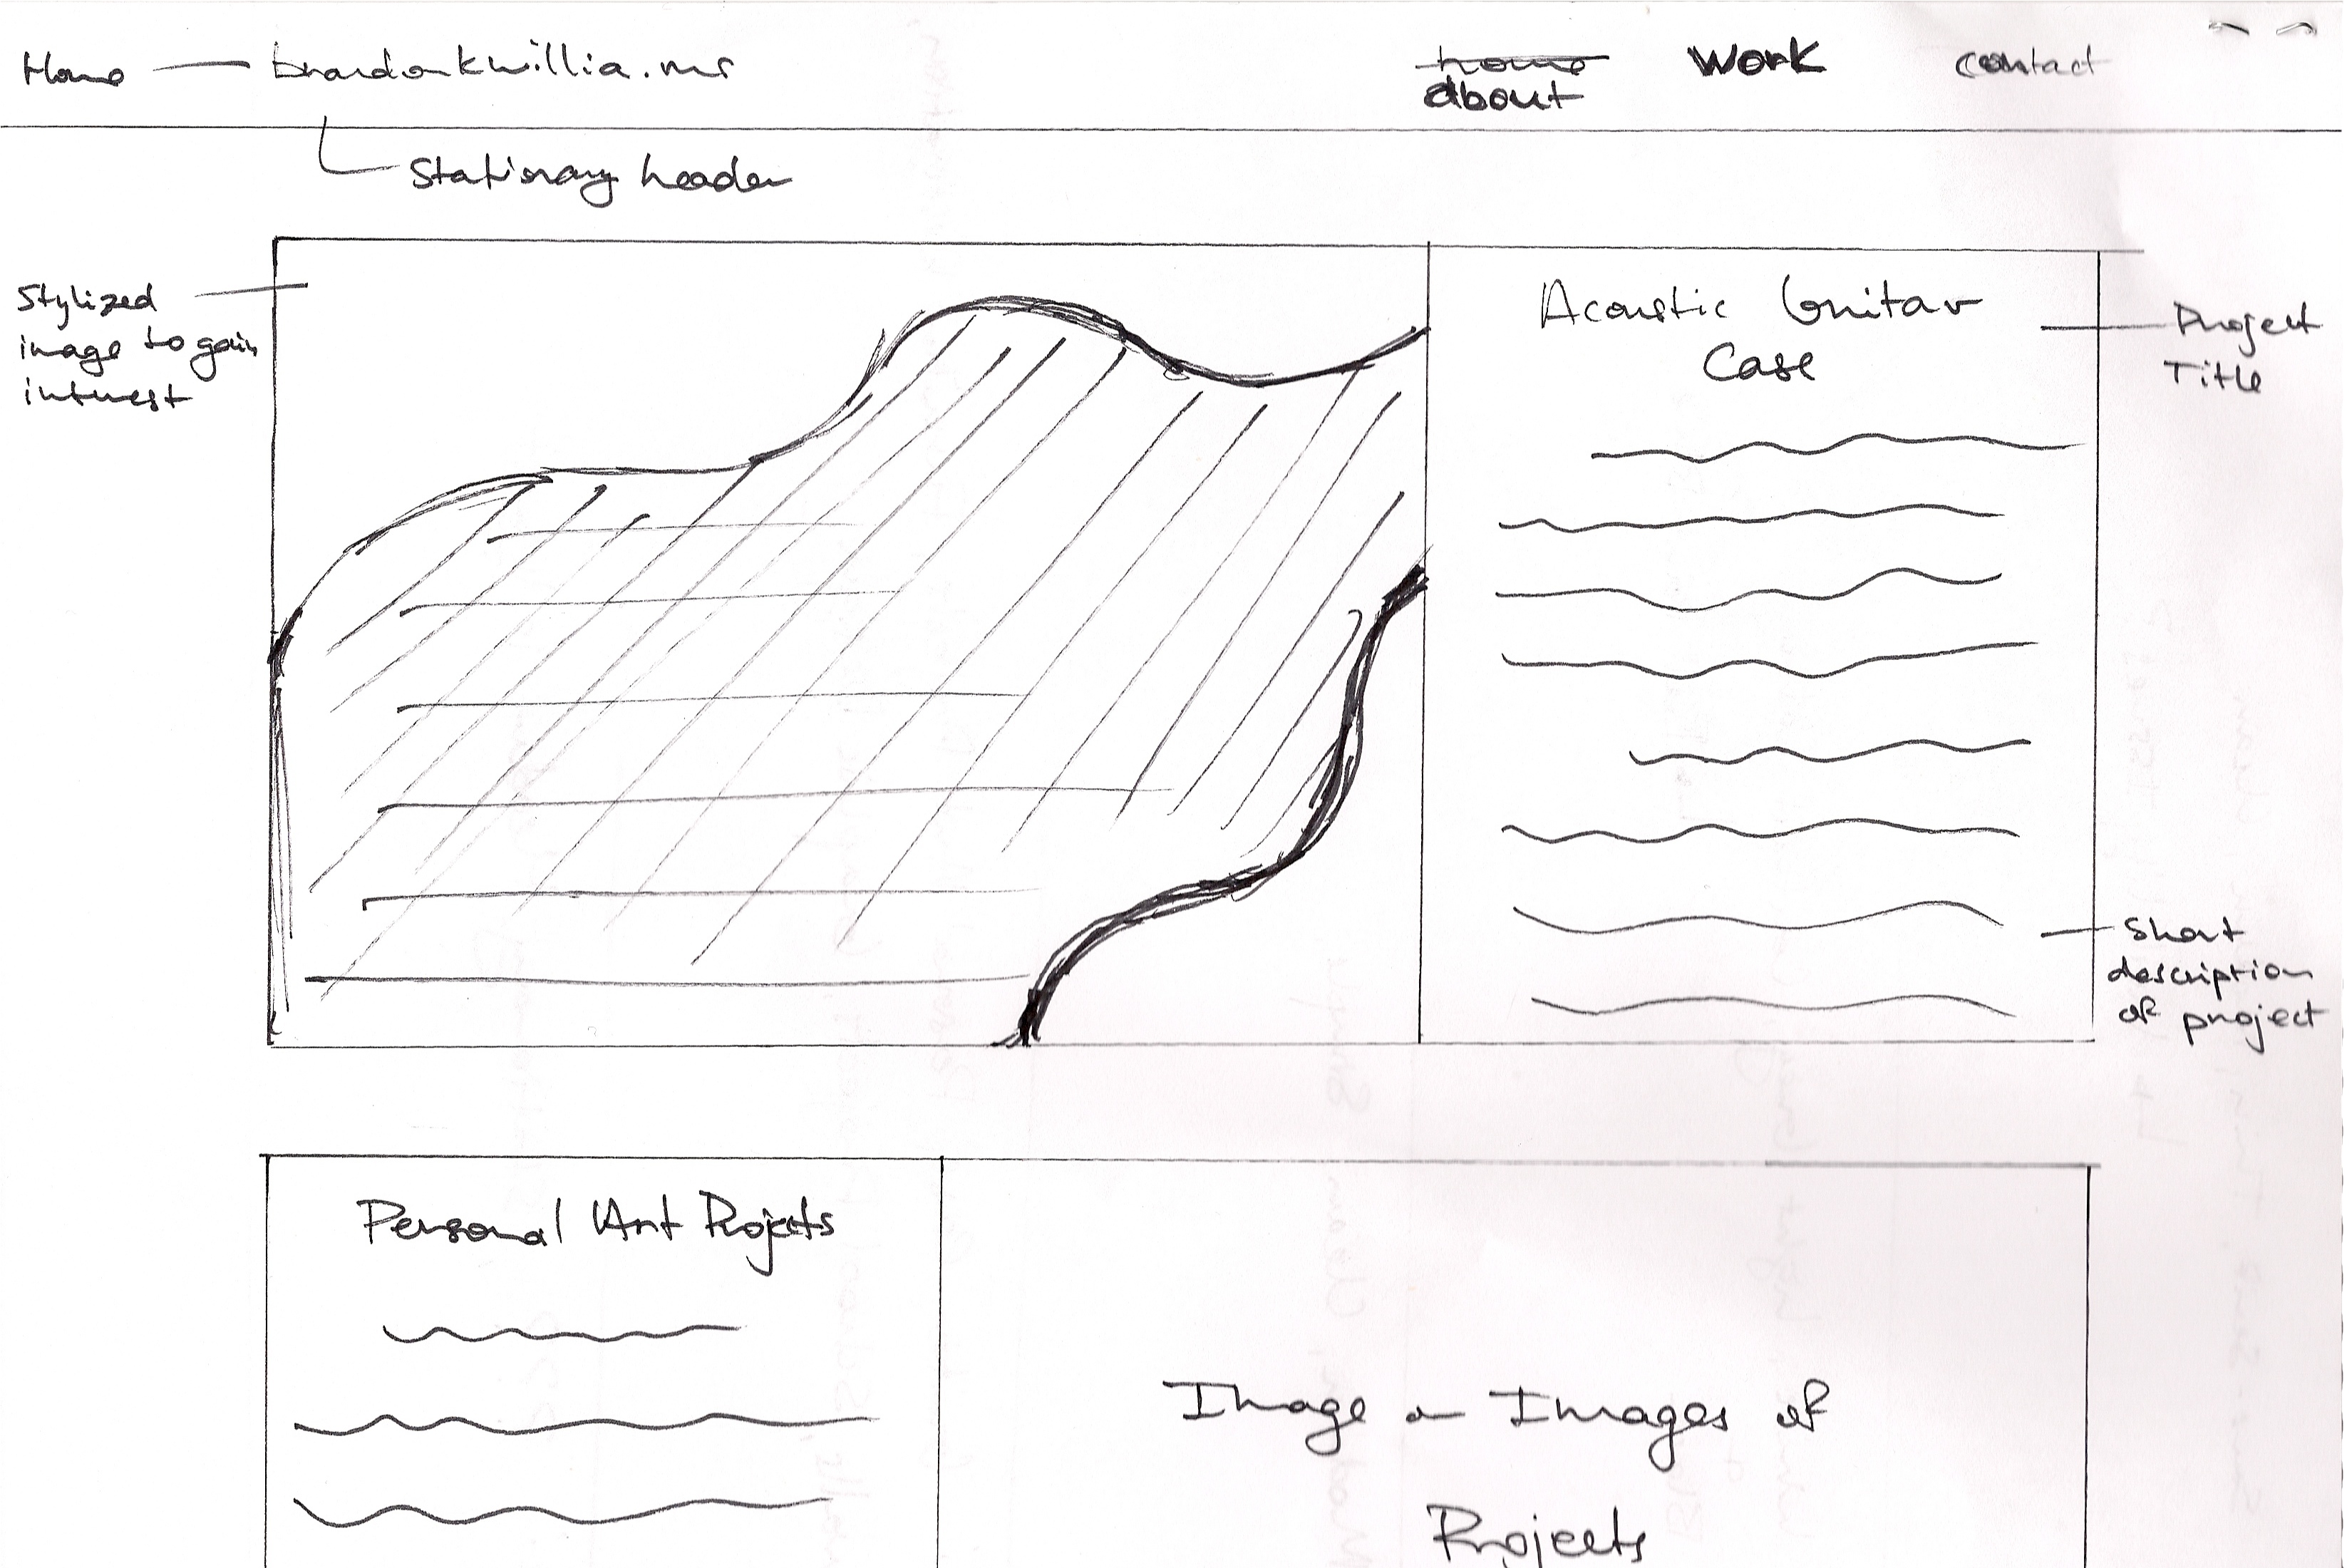 Home — brandonkwillia.ms
home
about
Work
contact
Stationary header
Stylized
image to gain
interest
Acoustic Guitar
Case
Project
Title
Short
description
of project
Personal Art Projects
Image or Images of
Projects